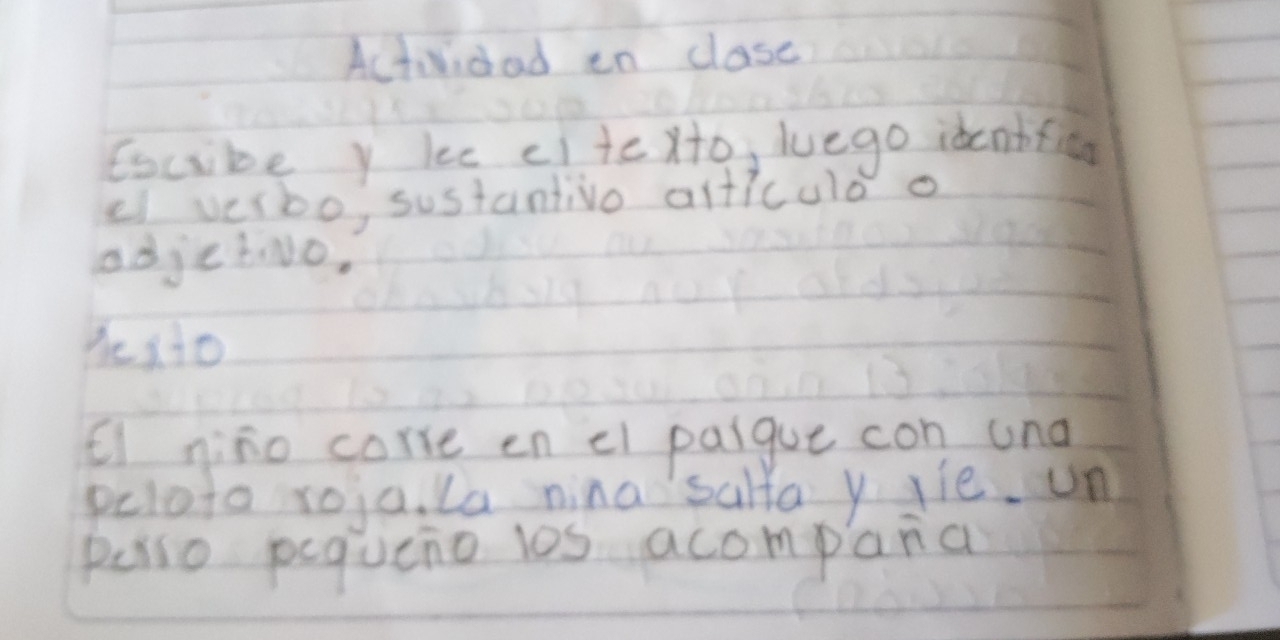 Actividad en clase
Escribe y lee el texto, luego identifica
el verbo, sustantivo artículo o
adjetivo.
Texto
El niño corre en el parque con una
pelota roja. La nina salta y ríe. Un
perro pequeño los acompaña